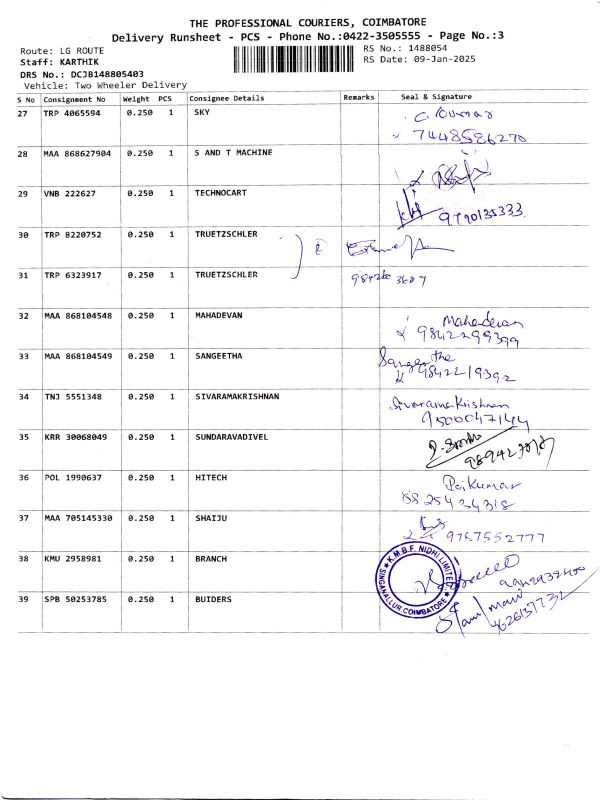 THE PROFESSIONAL COURIERS, COIMBATORE
Delivery Runsheet - PCS - Phone No.:0422-3505555 - Page No.:3
Route: LG ROUTE RS No.: 1488054
Staff: KARTHIK RS Date: 09-Jan-2025
DRS No.: DCJB148805403
Vehicle: Two Wheeler Delivery
S No Consignment No Weight PCS Consignee Details Remarks Seal & Signature
27 TRP 4065594 0.250 1 SKY C. Kumar
7448586270
28 MAA 868627904 0.250 1 S AND T MACHINE
29 VNB 222627 0.250 1 TECHNOCART
9790135333
30 TRP 8220752 0.250 1 TRUETZSCHLER
31 TRP 6323917 0.250 1 TRUETZSCHLER
32 MAA 868104548 0.250 1 MAHADEVAN Mahadevan
9842299399
33 MAA 868104549 0.250 1 SANGEETHA Sangeetha
9842219392
34 TNJ 5551348 0.250 1 SIVARAMAKRISHNAN Sivaramakrishnan
9500047144
35 KRR 30068049 0.250 1 SUNDARAVADIVEL
36 POL 1990637 0.250 1 HITECH
8825434318
37 MAA 705145330 0.250 1 SHAIJU
9787552777
38 KMU 2958981 0.250 1 BRANCH K.M.B.F. NIDHI LIMITED
SINGANALLUR, COIMBATORE
39 SPB 50253785 0.250 1 BUIDERS